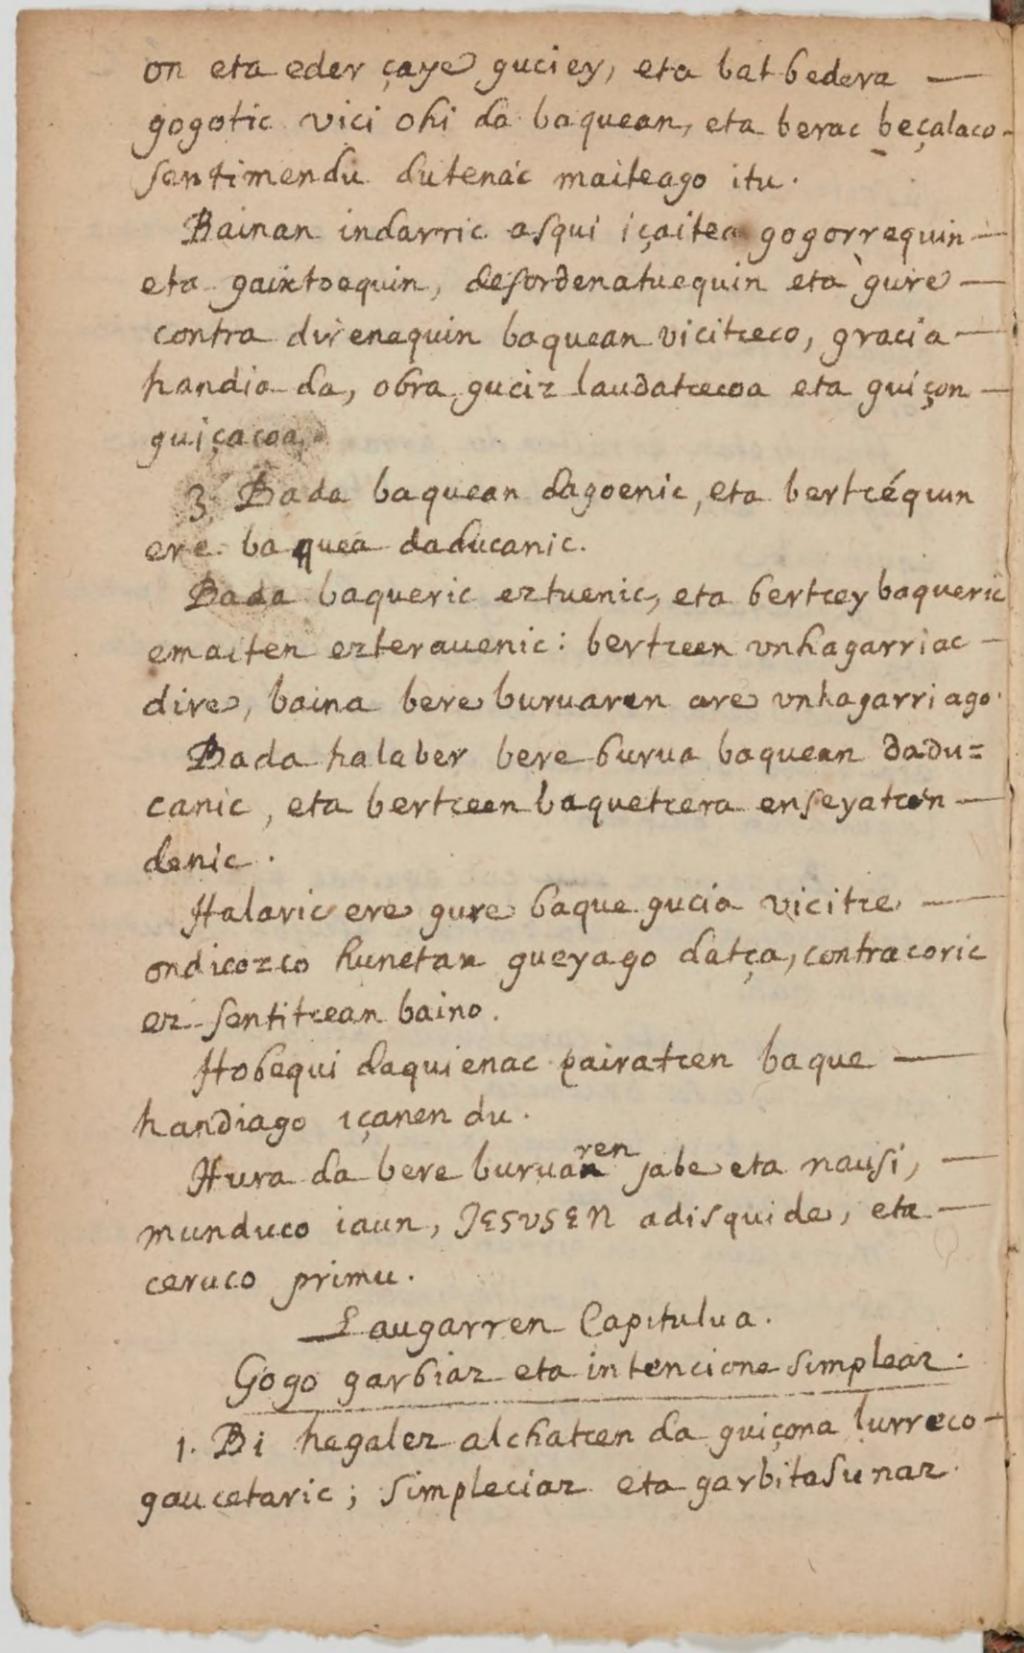 on eta eder çaye guciey, eta batbedera —
gogotic vici ohi da baquean, eta berac beçalaco
sentimendu dutenac maiteago itu.
Bainan indarric asqui içaitea gogorrequin —
eta gaixtoequin, desordenatuequin eta gure —
contra direnequin baquean vicitceco, gracia —
handia da, obra guciz laudatcecoa eta guiçon —
guiçacoa.
3. Bada baquean dagoenic, eta bertcéquin
ere baquea daducanic.
Bada baqueric eztuenic, eta bertcey baqueric
emaiten ezterauenic: bertceen vnhagarriac —
dire, baina bere buruaren are vnhagarriago.
Bada halaber bere burua baquean dadu=
canic, eta bertceen baquetcera enseyatcen —
denic.
Halaric ere gure baque gucia vicitce —
ondicozco hunetan gueyago datça, contracoric
ez sentitcean baino.
Hobequi daquienac pairatcen baque —
handiago içanen du.
Hura da bere buruaren jabe eta nausi, —
munduco iaun, JESVSEN adisquide, eta —
ceruco primu.
Laugarren Capitulua.
Gogo garbiaz eta intencione simpleaz.
1. Bi hegalez alchatcen da guiçona lurreco —
gaucetaric; simpleciaz eta garbitasunaz.